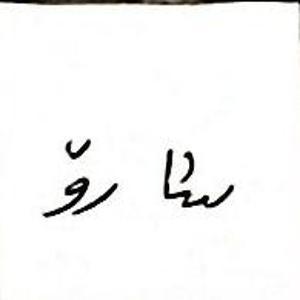 ستارۆ